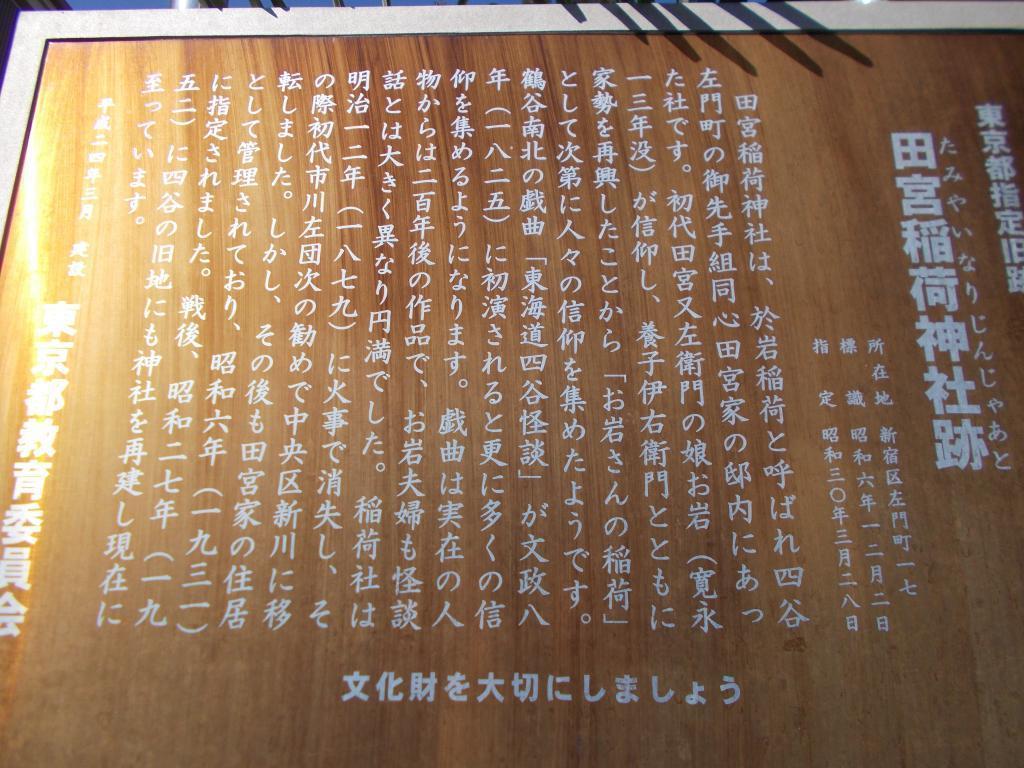 東京都指定旧跡
たみやいなりじんじゃあと
田宮稲荷神社跡
所在地 新宿区左門町一七
標識 昭和六年一二月二日
指定 昭和三〇年三月二八日
田宮稲荷神社は、於岩稲荷と呼ばれ四谷
左門町の御先手組同心田宮家の邸内にあっ
た社です。初代田宮又左衛門の娘お岩（寛永
一三年没）が信仰し、養子伊右衛門とともに
家勢を再興したことから「お岩さんの稲荷」
として次第に人々の信仰を集めたようです。
鶴谷南北の戯曲「東海道四谷怪談」が文政八
年（一八二五）に初演されると更に多くの信
仰を集めるようになります。戯曲は実在の人
物からは二百年後の作品で、お岩夫婦も怪談
話とは大きく異なり円満でした。稲荷社は
明治一二年（一八七九）に火事で消失し、そ
の際初代市川左団次の勧めで中央区新川に移
転しました。しかし、その後も田宮家の住居
として管理されており、昭和六年（一九三一）
に指定されました。戦後、昭和二七年（一九
五二）に四谷の旧地にも神社を再建し現在に
至っています。
平成二四年三月 建設
東京都教育委員会
文化財を大切にしましょう